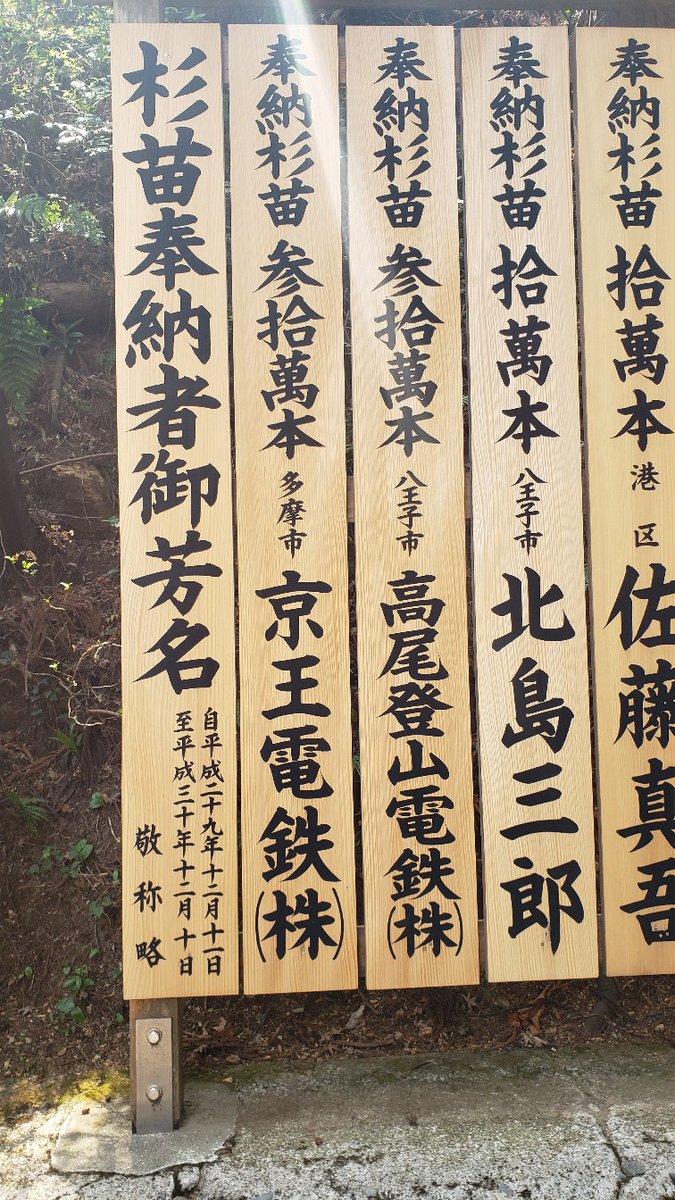 杉苗奉納者御芳名
自平成二十九年十二月十一日
至平成三十年十二月十日
敬称略
奉納杉苗 参拾萬本 多摩市 京王電鉄(株)
奉納杉苗 参拾萬本 八王子市 高尾登山電鉄(株)
奉納杉苗 拾萬本 八王子市 北島三郎
奉納杉苗 拾萬本 港区 佐藤真吾